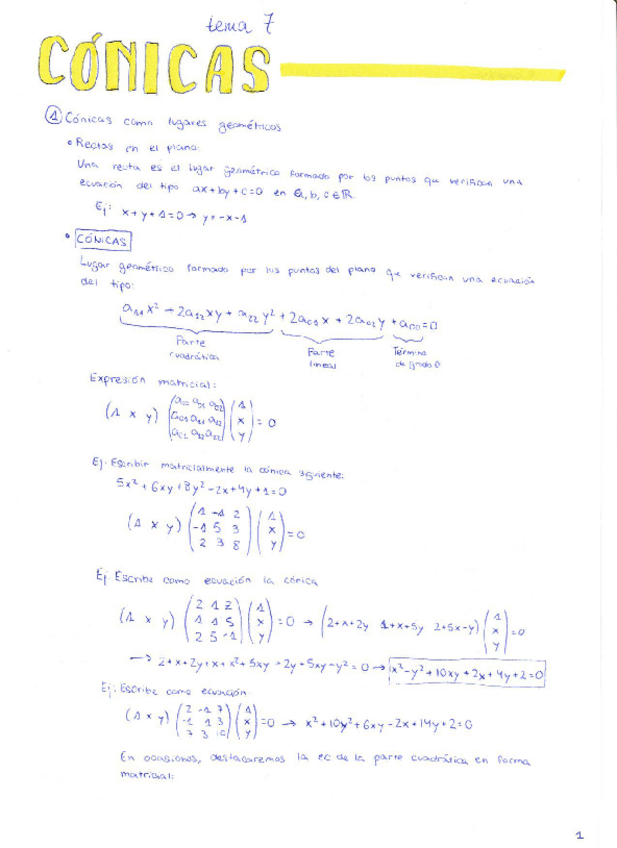 tema 7
CÓNICAS
① Cónicas como lugares geométricos
• Rectas en el plano:
Una recta es el lugar geométrico formado por los puntos que verifican una
ecuación del tipo ax+by+c=0 en a,b,c∈ℝ
Ej: x+y+1=0 → y=-x-1
• CÓNICAS
Lugar geométrico formado por los puntos del plano que verifican una ecuación
del tipo:
a₁₁x² + 2a₁₂xy + a₂₂y² + 2a₀₁x + 2a₀₂y + a₀₀ = 0
Parte cuadrática Parte lineal Término de grado 0
Expresión matricial:
(1 x y) (a₀₀ a₀₁ a₀₂ / a₀₁ a₁₁ a₁₂ / a₀₂ a₁₂ a₂₂) (1 / x / y) = 0
Ej: Escribir matricialmente la cónica siguiente:
5x²+6xy+8y²-2x+4y+1=0
(1 x y) (1 -1 2 / -1 5 3 / 2 3 8) (1 / x / y) = 0
Ej: Escribe como ecuación la cónica
(1 x y) (2 1 2 / 1 1 5 / 2 5 -1) (1 / x / y) = 0 → (2+x+2y 1+x+5y 2+5x-y) (1 / x / y) = 0
→ 2+x+2y+x+x²+5xy+2y+5xy-y²=0 → x²-y²+10xy+2x+4y+2=0
Ej: Escribe como ecuación
(1 x y) (2 -1 7 / -1 1 3 / 7 3 10) (1 / x / y) = 0 → x²+10y²+6xy-2x+14y+2=0
En ocasiones, destacaremos la ec de la parte cuadrática en forma
matricial:
1